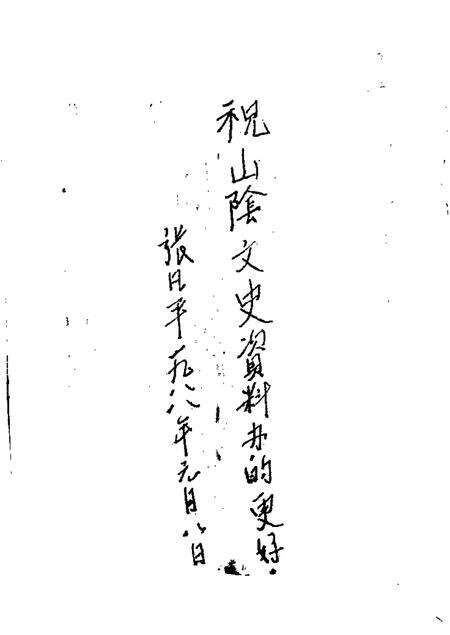 祝山陰文史資料办的更好.
張日平一九八八年元月八日